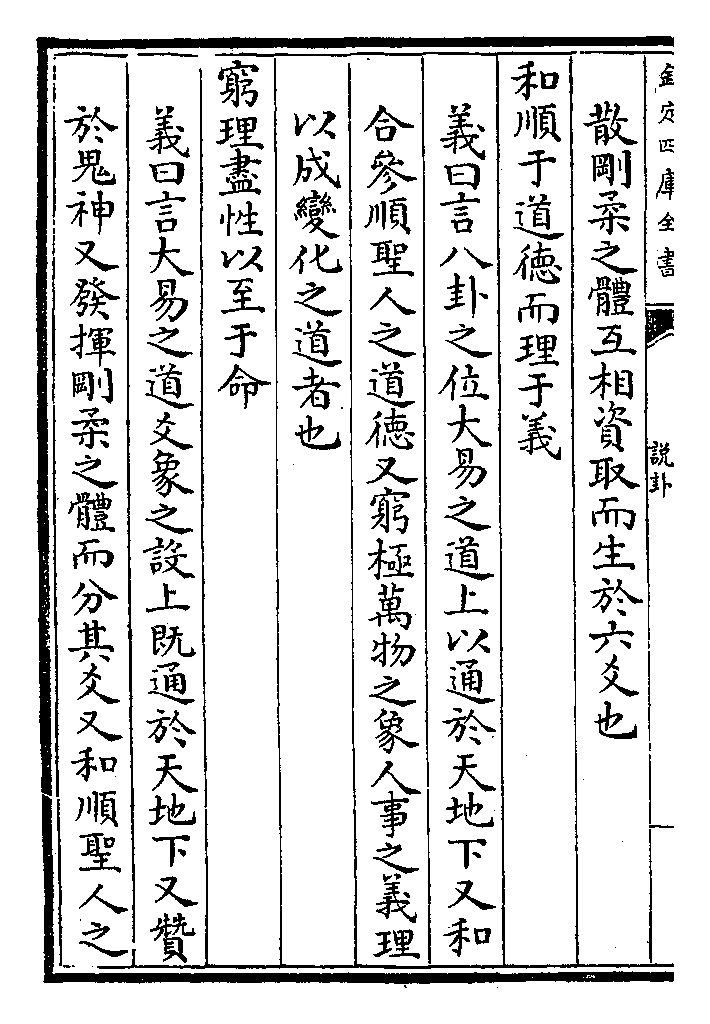 欽定四庫全書
說卦
散剛柔之體互相資取而生於六爻也
和順于道德而理于義
義曰言八卦之位大易之道上以通於天地下又和
合參順聖人之道德又窮極萬物之象人事之義理
以成變化之道者也
窮理盡性以至于命
義曰言大易之道爻象之設上既通於天地下又贊
於鬼神又發揮剛柔之體而分其爻又和順聖人之